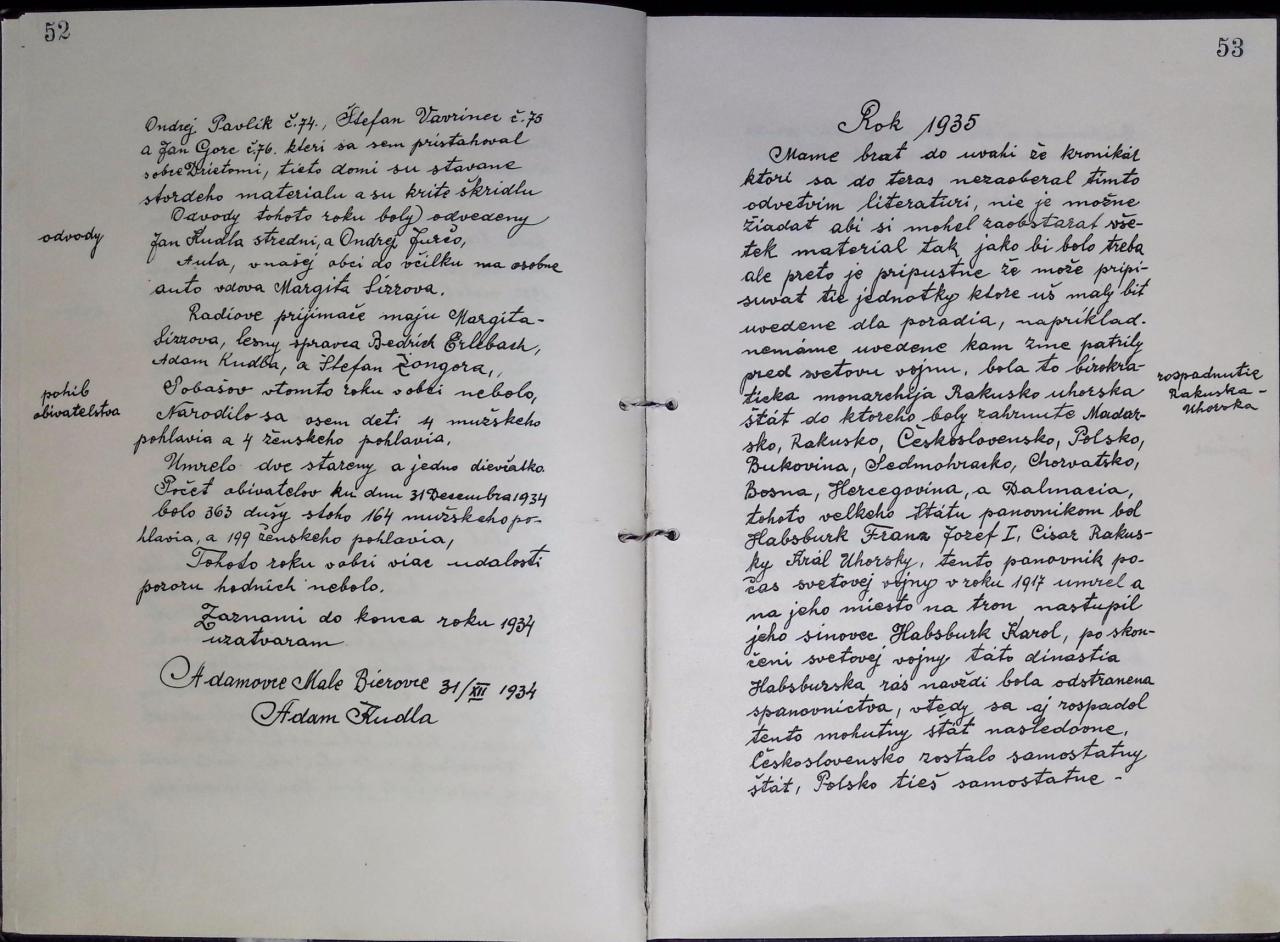 52
Ondrej Pavlik č.74., Štefan Vavrinec č.75
a Jan Gorc č.76. kteri sa sem pristahoval
sobce Drietomi, tieto domi su stavane
stvrdeho materialu a su krite škridlu
Odvody tohoto roku boly) odvedeny
odvody
Jan Kudla stredni, a Ondrej Jurčo,
Auta, vnašej obci do včilku ma osobne
auto vdova Margita Sizzova.
Radiove prijimače maju Margita-
Sizzova, lesny spravca Bedrich Erlebach,
Adam Kudla, a Štefan Žongora,,
pohib
obivatelstva
Sobašov vtomto roku vobci nebolo,
Narodilo sa osem deti 4 mužskeho
pohlavia a 4 ženskeho pohlavia.
Umrelo dve stareny a jedno dievčatko.
Počet obivatelov ku dnu 31 Decembra 1934
bolo 363 dušy stoho 164 mužskeho po-
hlavia, a 199 ženskeho pohlavia,
Tohoto roku vobci viac udalosti
pozoru hodnich nebolo.
Zaznami do konca roku 1934
uzatvaram
Adamovce Male Bierovce 31/XII 1934
Adam Kudla
53
Rok 1935
Mame brat do uvahi že kronikár
ktori sa do teraz nezaoberal timto
odvetvim literaturi, nie je možne
žiadat abi si mohel zaobstarat vše-
tek material tak jako bi bolo treba
ale preto je pripustne že može pripi-
suvat tie jednotky ktore uš maly bit
uvedene dla poradia, napriklad.
nemáme uvedene kam zme patrily
pred svetovu vojnu, bola to birokra-
ticka monarchija Rakusko uhorska
rospadnutie
Rakuska-
Uhorska
štát do ktoreho boly zahrnute Madar-
sko, Rakusko, Československo, Polsko,
Bukovina, Sedmohracko, Chorvatsko,
Bosna, Hercegovina, a Dalmacia,
tohoto velkeho štátu panovnikom bol
Habsburk Franz Jozef I, Cisar Rakus-
ky Král Uhorsky, tento panovnik po-
čas svetovej vojny v roku 1917 umrel a
na jeho miesto na tron nastupil
jeho sinovec Habsburk Karol, po skon-
čeni svetovej vojny táto dinastia
Habsburska rás navždi bola odstranena
spanovnictva, vtedy sa aj rospadol
tento mohutny štát nasledovne,
Československo zostalo samostatny
štát, Polsko tieš samostatne -